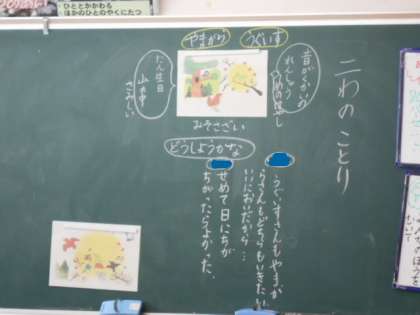 ひととかかわる
ほかのひとのやくにたつ
二わのことり
うぐいす
やまがら
音がくかいの
れんしゅう
うめのはやし
たん生日
山おく
さみしい
みそさざい
どうしようかな
うぐいすさんもやまが
らさんもどちらもいきたい
いいにおいだから…
せめて日にちが
ちがったらよかった。